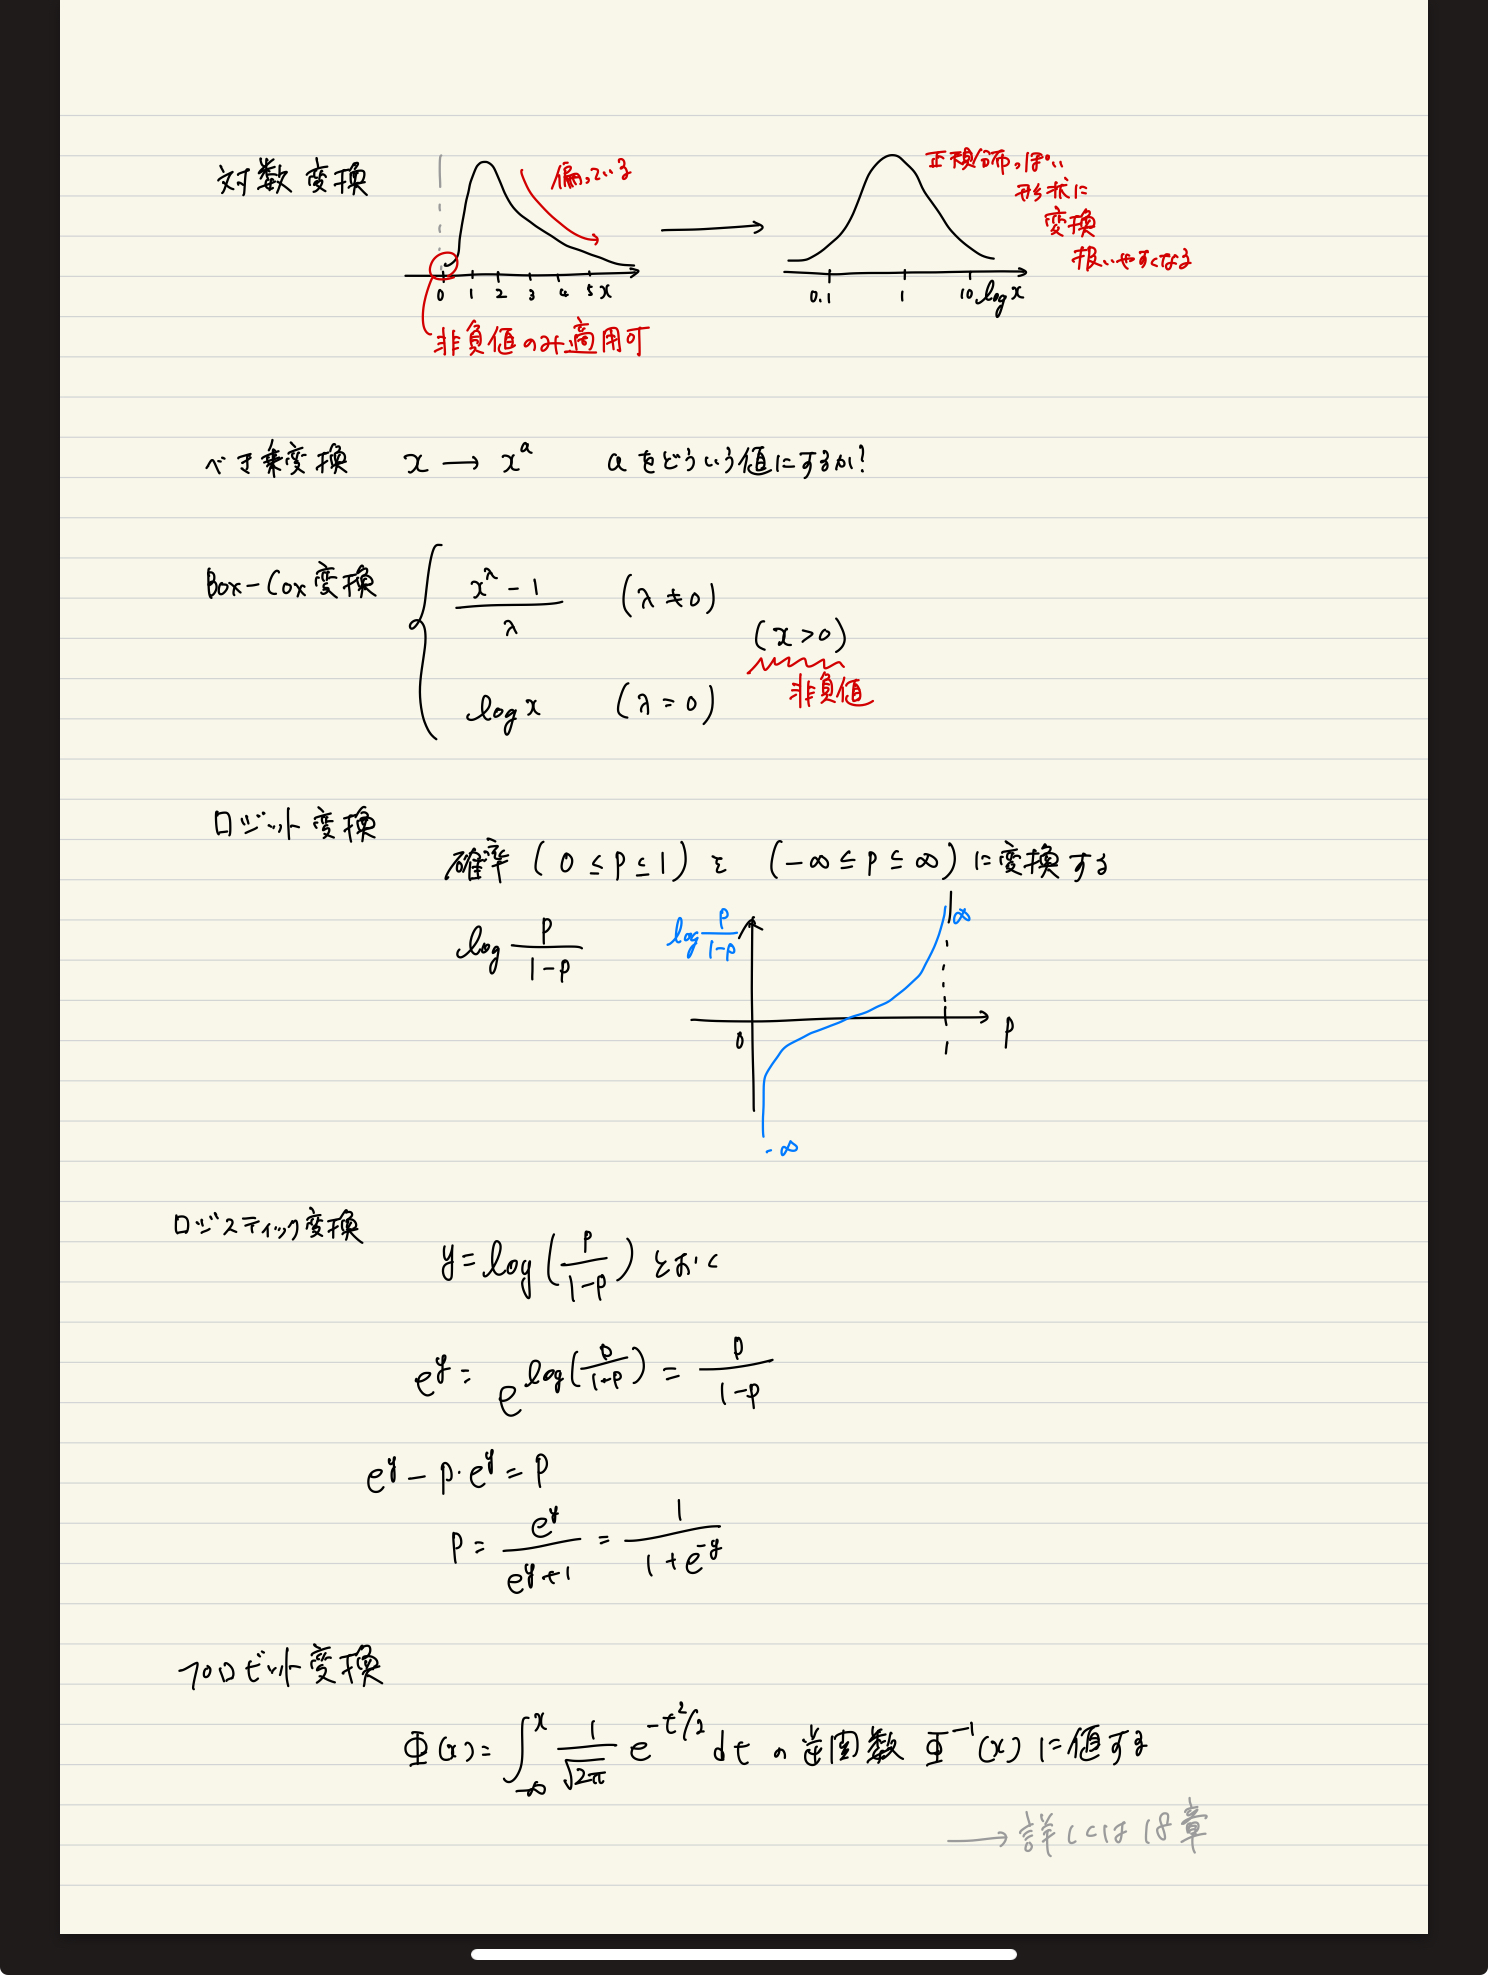 対数変換
偏っている
0 1 2 3 4 5 x
非負値のみ適用可
正規分布っぽい
形状に
変換
扱いやすくなる
0.1 1 10 log x
べき乗変換 x → x^a aをどういう値にするか?
Box-Cox変換
(x^λ - 1)/λ (λ ≠ 0)
(x > 0)
非負値
log x (λ = 0)
ロジット変換
確率 (0 ≤ p ≤ 1) を (-∞ ≤ p ≤ ∞) に変換する
log p/(1-p)
log p/(1-p)
∞
0 1 p
-∞
ロジスティック変換
y = log(p/(1-p)) とおく
e^y = e^{log(p/(1-p))} = p/(1-p)
e^y - p・e^y = p
p = e^y/(e^y+1) = 1/(1+e^{-y})
プロビット変換
Φ(x) = ∫_{-∞}^{x} 1/√2π e^{-t²/2} dt の逆関数 Φ^{-1}(x) に値する
→ 詳しくは18章